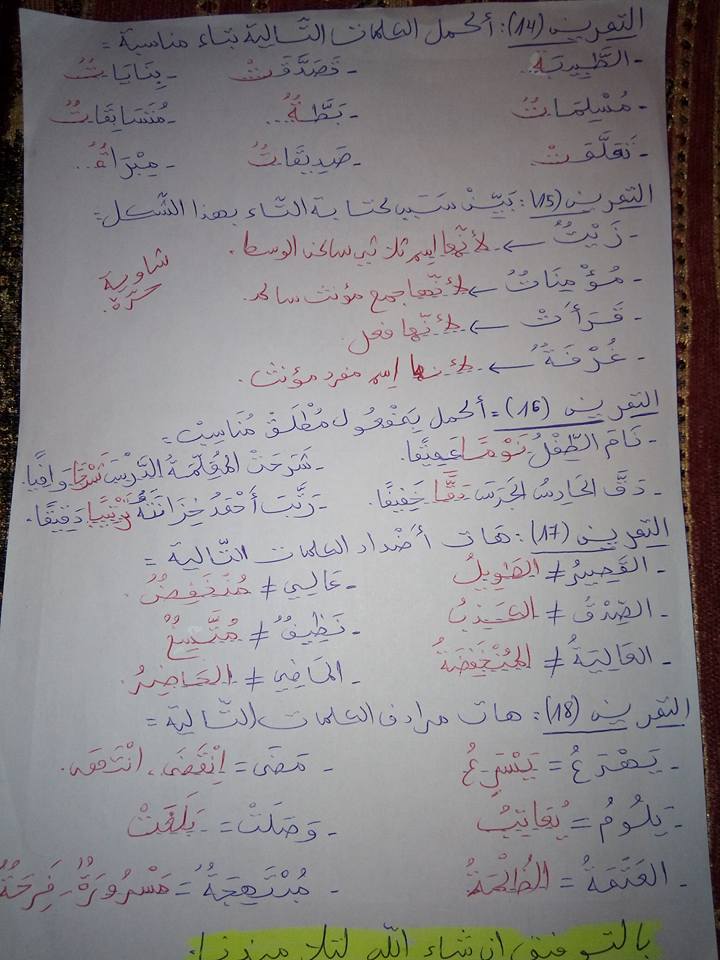 التمرين (14): أكمل الكلمات التّالية بتاء مناسبة =
- الطَّبِيبَة.. - تَصَدَّقَتْ - بِنَايَاتُ
- مُسْلِمَاتُ - بَطَّةُ... - مُتَسَابِقَاتُ
- تَعَلَّقَتْ - صَدِيقَاتُ - مِبْرَاةُ..
التمرين (15): بَيِّنْ سَبَب كتابة التّاء بهذا الشّكل:
- زَيْتُ ← لأنّها اسم ثلاثي ساكن الوسط.
- مُؤْمِنَاتُ ← لأنّها جمع مؤنث سالم.
شاوية حرّة.
- قَرَأَتْ ← لأنّها فعل.
- غُرْفَةُ ← لأنها اسم مفرد مؤنث.
التمرين (16) = أكمل بمفعول مُطْلَقْ مُنَاسِبْ =
- نَامَ الطِّفْلُ نَوْمًا عَمِيقًا. - شَرَحَتْ المُعَلِّمَةُ الدَّرْسَ شَرْحًا وَافِيًا.
- دَقَّ الحَارِسُ الجَرَسَ دَقًّا خَفِيفًا. - رَتَّبَ أَحْمَدُ خِزَانَتَهُ تَرْتِيبًا دَقِيقًا.
التمرين (17): هَات أَضْدَاد الكلمات التّالية =
- القَصِيرُ ≠ الطَوِيلُ - عَالِي ≠ مُنْخَفِضُ.
- الصِّدْقُ ≠ الكَذِبُ - نَظِيفُ ≠ مُتَّسِخُ
- العَالِيَةُ ≠ المُنْخَفِضَةُ - المَاضِي ≠ الحَاضِرُ.
التمرين (18): هات مرادف الكلمات التّالية =
- يَهْرَعُ = يُسْرِعُ - مَضَى = اِنْقَضَى، انْتَهَى.
- يَلُومُ = يُعَاتِبُ - وَصَلَتْ = بَلَغَتْ
- العَتَمَةُ = الظُلْمَةُ - مُبْتَهِجَةُ = مَسْرُورَةُ - فَرِحَةُ
بالتوفيق إن شاء الله لتلاميذنا.